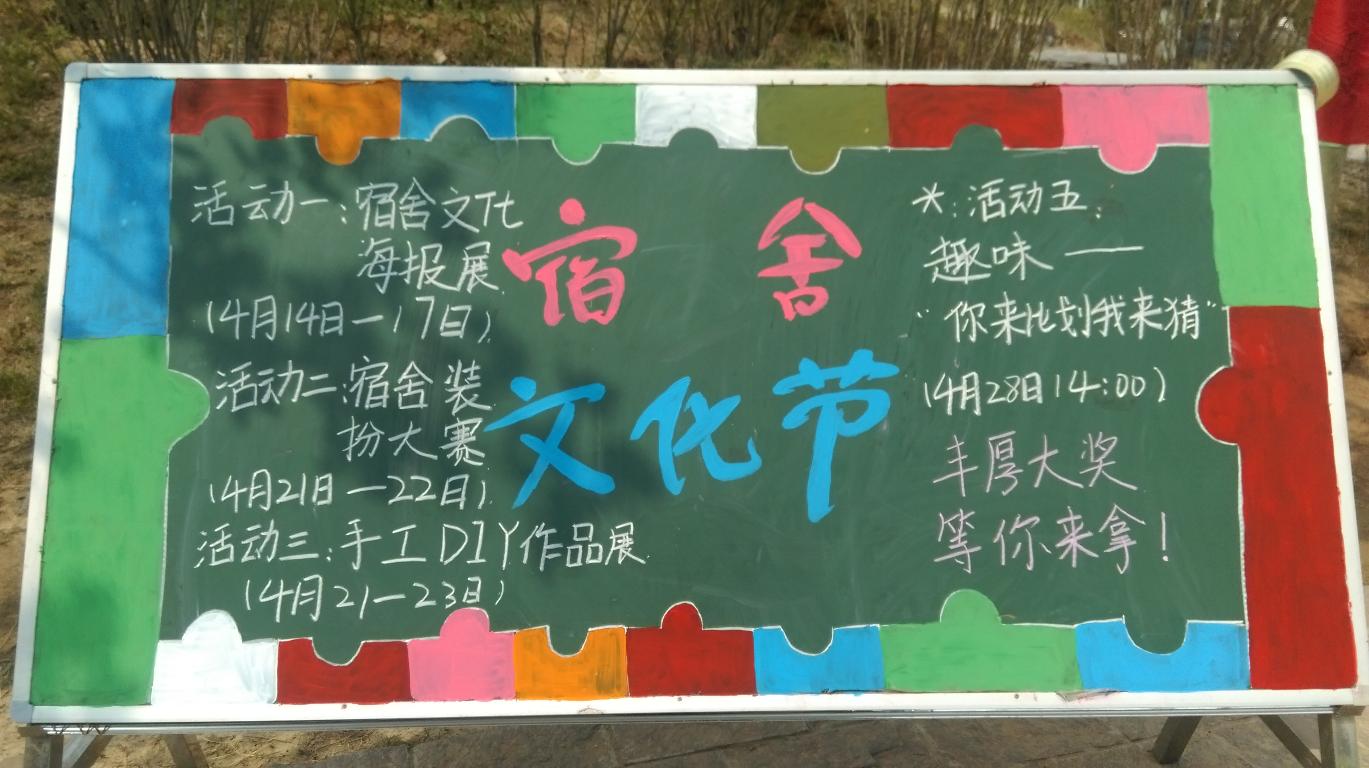 活动一:宿舍文化
海报展
(4月14日—17日)
活动二:宿舍装
扮大赛
(4月21日—22日)
活动三:手工DIY作品展
(4月21—23日)
宿舍
文化节
*:活动五:
趣味——
“你来比划我来猜”
(4月28日14:00)
丰厚大奖
等你来拿!